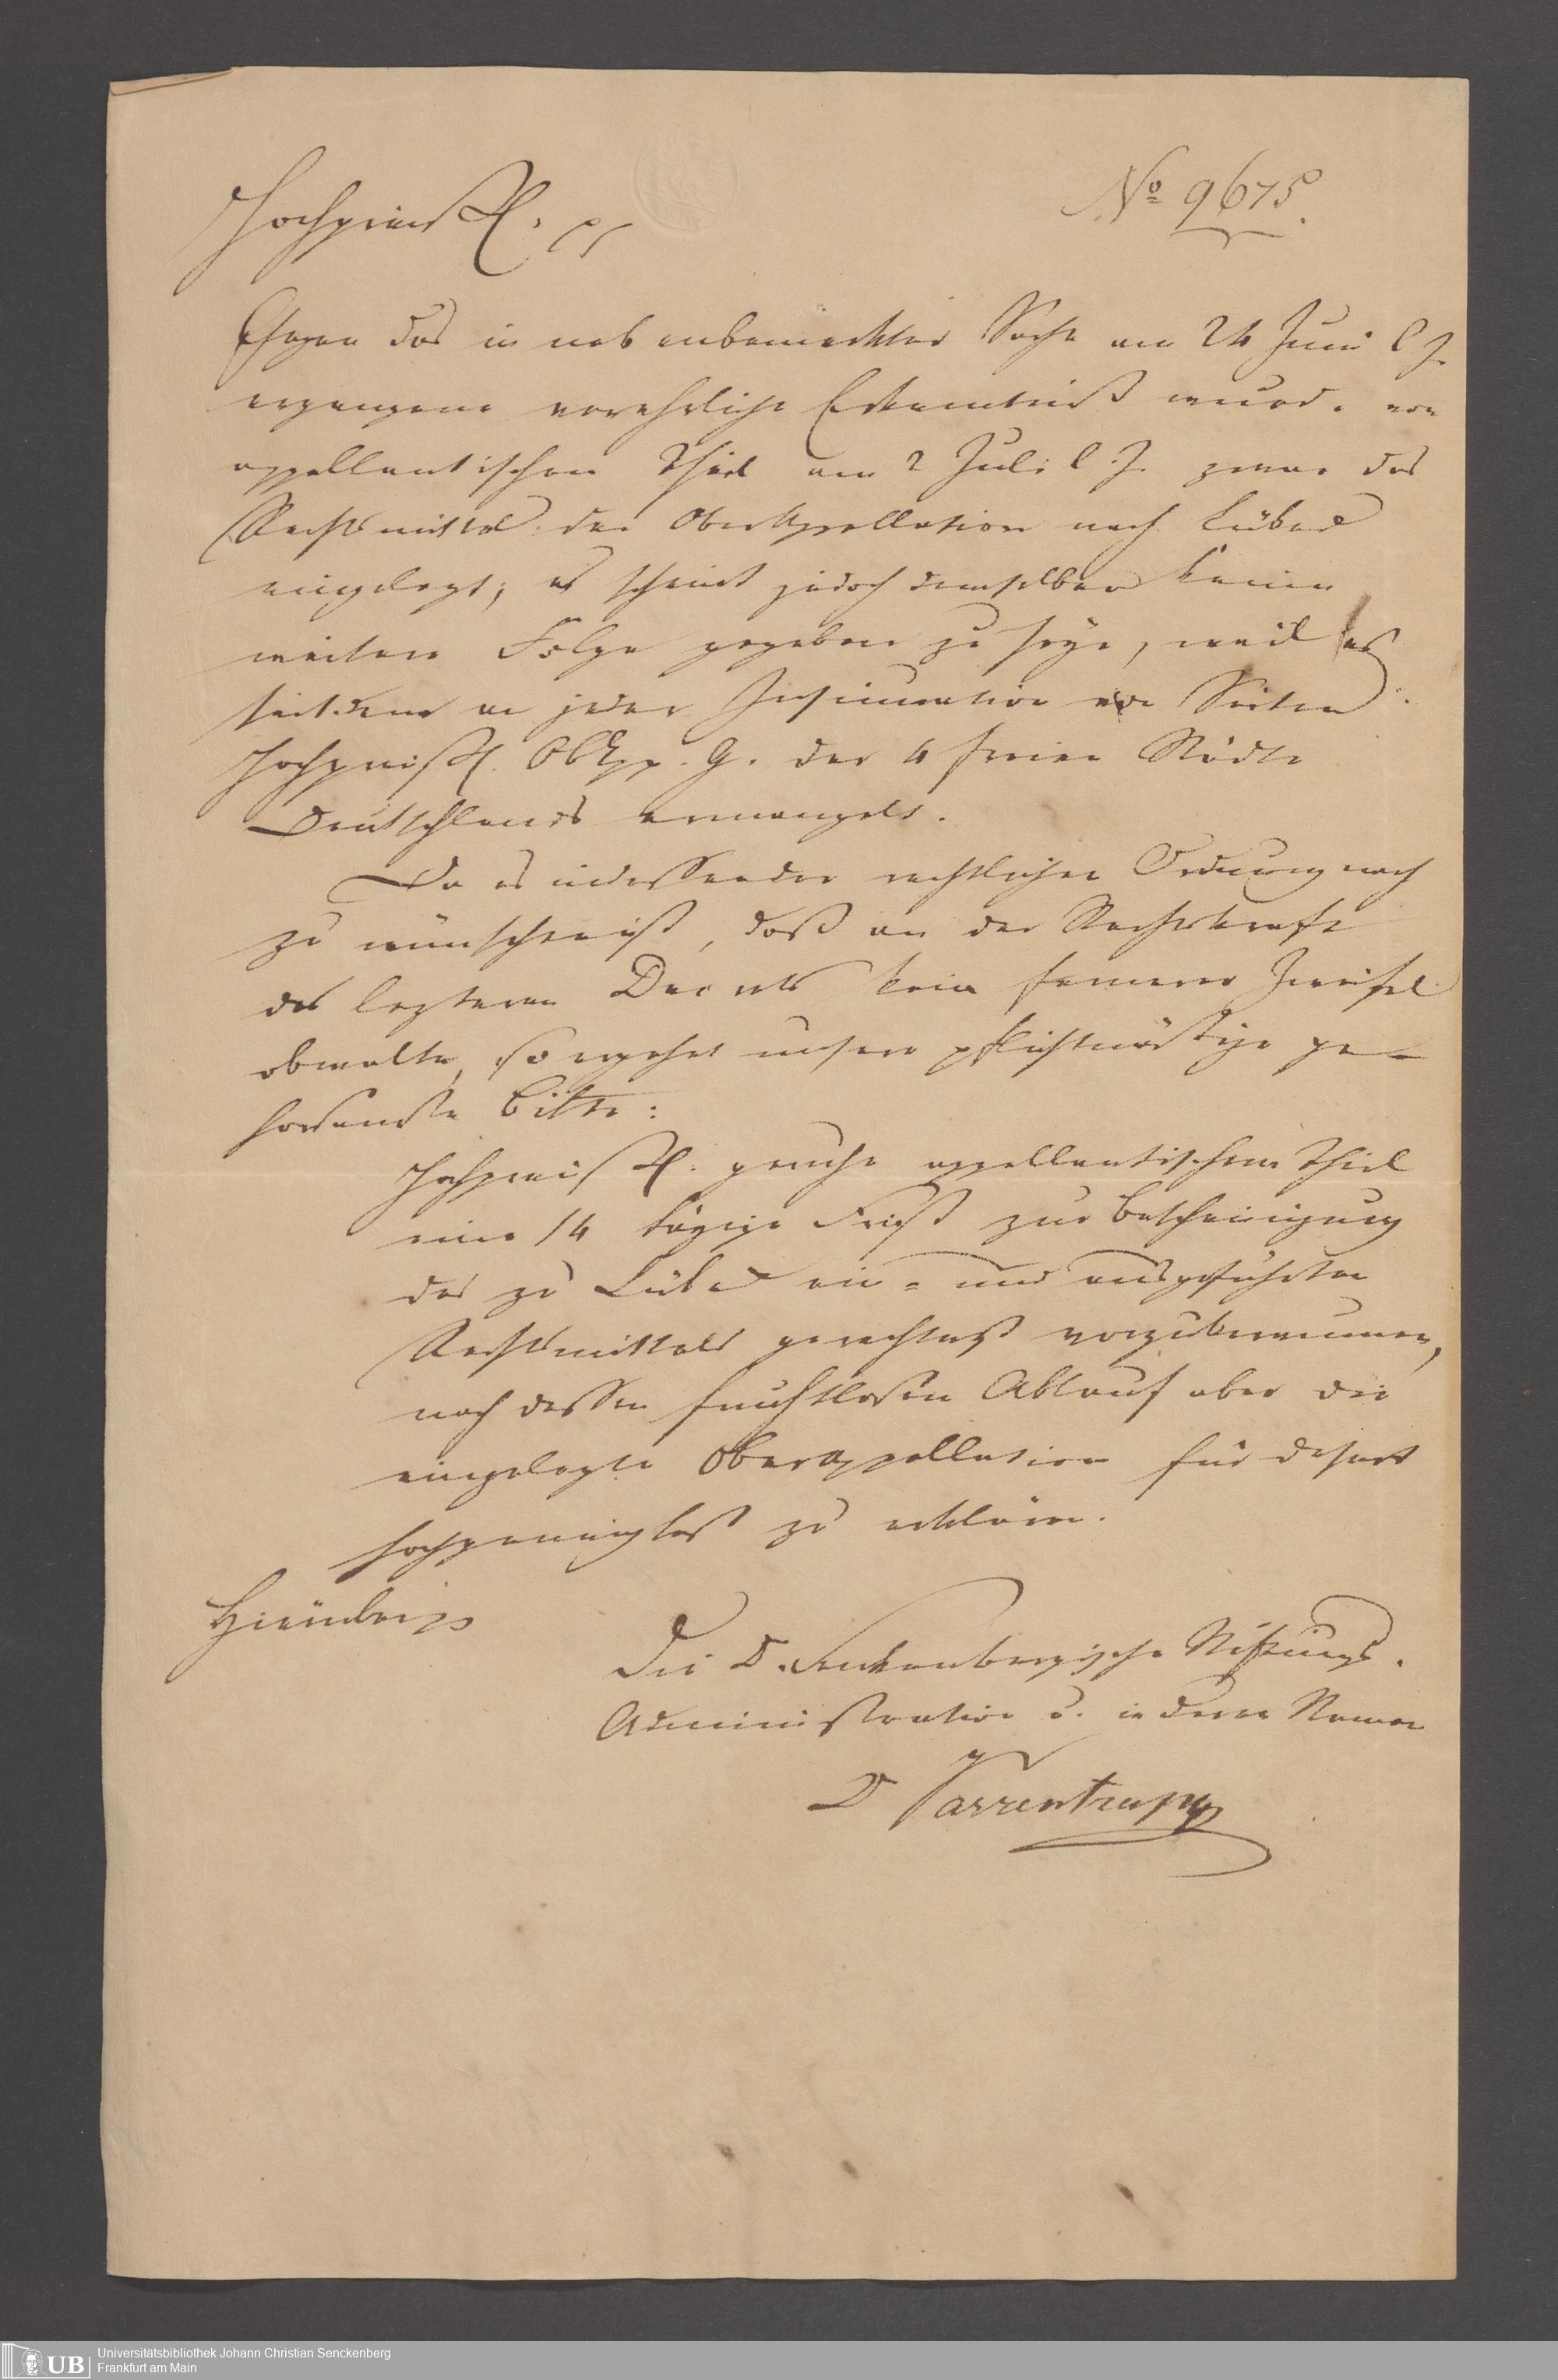 No 9675.
Hochpreißl. p
Gegen das in nebenbemerkter Sache am 24 Juni l. J.
ergangene verehrliche Erkenntniß wurde von
appellantischem Theil am 2 Juli l. J. zwar das
Rechtsmittel der OberAppellation nach Lübeck
eingelegt; es scheint jedoch demselben keine
weitere Folge gegeben zu seyn, weil es
seitdem an jeder Insinuation von Seiten
Hochpreißl. ObApp. G. der 4 freien Städte
Deutschlands ermangelt.
Da es indessen der rechtlichen Ordnung nach
zu wünschen ist, daß an der Rechtskraft
des lezteren Decrets kein fernerer Zweifel
obwalte, so ergehet unsere pflichtmäßige ge-
horsamste Bitte:
Hochpreißl. geruhe appellantischem Theil
eine 14 tägige Frist zur Bescheinigung
des zu Lübeck ein- und ausgeführten
Rechtsmittels gerechtest vorzuberaumen,
nach dessen fruchtlosen Ablauf aber die
eingelegte Oberappellation für desert
hochgeneigtest zu erklären.
Hierüber p
Die D. Senkenbergische Stiftungs.
Administration u. in deren Namen
D Varrentrapp
UB
Universitätsbibliothek Johann Christian Senckenberg
Frankfurt am Main